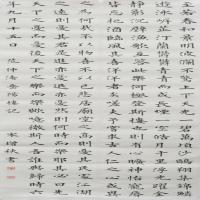 至若春和景明波瀾不驚上下天光一碧萬頃沙鷗翔集錦鱗
游泳岸芷汀蘭郁郁青青而或長煙一空皓月千里浮光躍金
靜影沉璧漁歌互答此樂何極登斯樓也則有心曠神怡寵辱
皆忘把酒臨風其喜洋洋者矣嗟夫予嘗求古仁人之心或異二者
之為何哉不以物喜不以己悲居廟堂之高則憂其民處江湖
之遠則憂其君是進亦憂退亦憂然則何時而樂耶其必曰先
天下之憂而憂後天下之樂而樂乎噫微斯人吾誰與歸時六
年九月十五日 范仲淹岳陽樓記 書